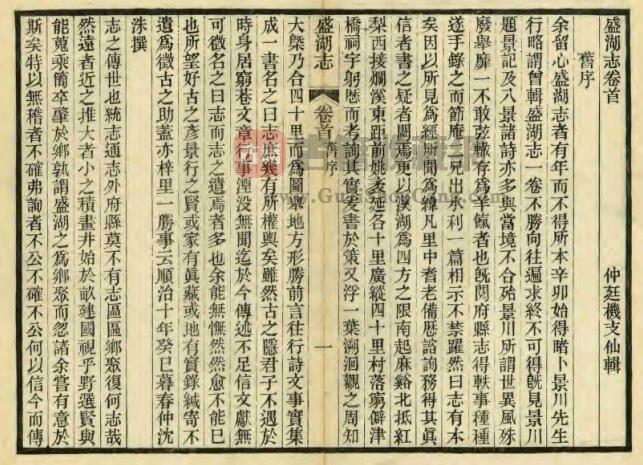 盛湖志卷首
仲廷機支仙輯
舊序
余留心盛湖志者有年而不得所本辛卯始得睹卜景川先生
行略謂曾輯盛湖志一卷不勝向往遍求終不可得旣見景川
題景記及八景諸詩亦多與當境不合殆景川所謂世異風殊
廢舉靡一不敢弦轍存為羊餼者也旣閱府縣志得軼事種種
遂手錄之而節庵 兄出永利一篇相示不禁躍然曰志有本
矣因以所見為經所聞為緯凡里中耆老備歷諮詢務得其眞
信者書之疑者闕焉更以盛湖為四方之限南起麻谿北抵紅
梨西接爛溪東距前姚袤延各十里廣縱四十里村落窮僻津
橋祠宇躬歴而考詢其實爰書於策又浮一葉溯洄觀之周知
盛湖志
卷首 舊序
一
大槩乃合四十里而為圖寨地方形勝前言往行詩文事實集
成一書名之曰志庶幾有所權輿矣雖然古之隱君子不遇於
時身居窮巷文章行事湮没無聞迄於今傳述不足信文獻無
可徵名之曰志而志之遺焉者多也余能無憮然然愈不能已
也所望好古之彥景行之賢或家有眞藏或地有實錄緘寄不
遺為徵古之助蓋亦梓里一勝事云順治十年癸巳暮春仲沈
洙撰
志之傳世也統志通志外府縣莫不有志區區鄉聚復何志哉
然遠者近之推大者小之積畫井始於畝建國視乎野選賢與
能蒐乘簡卒肇於鄉孰謂盛湖之為鄉聚而忽諸余嘗有意於
斯矣特以無稽者不確弗詢者不公不確不公何以信今而傳